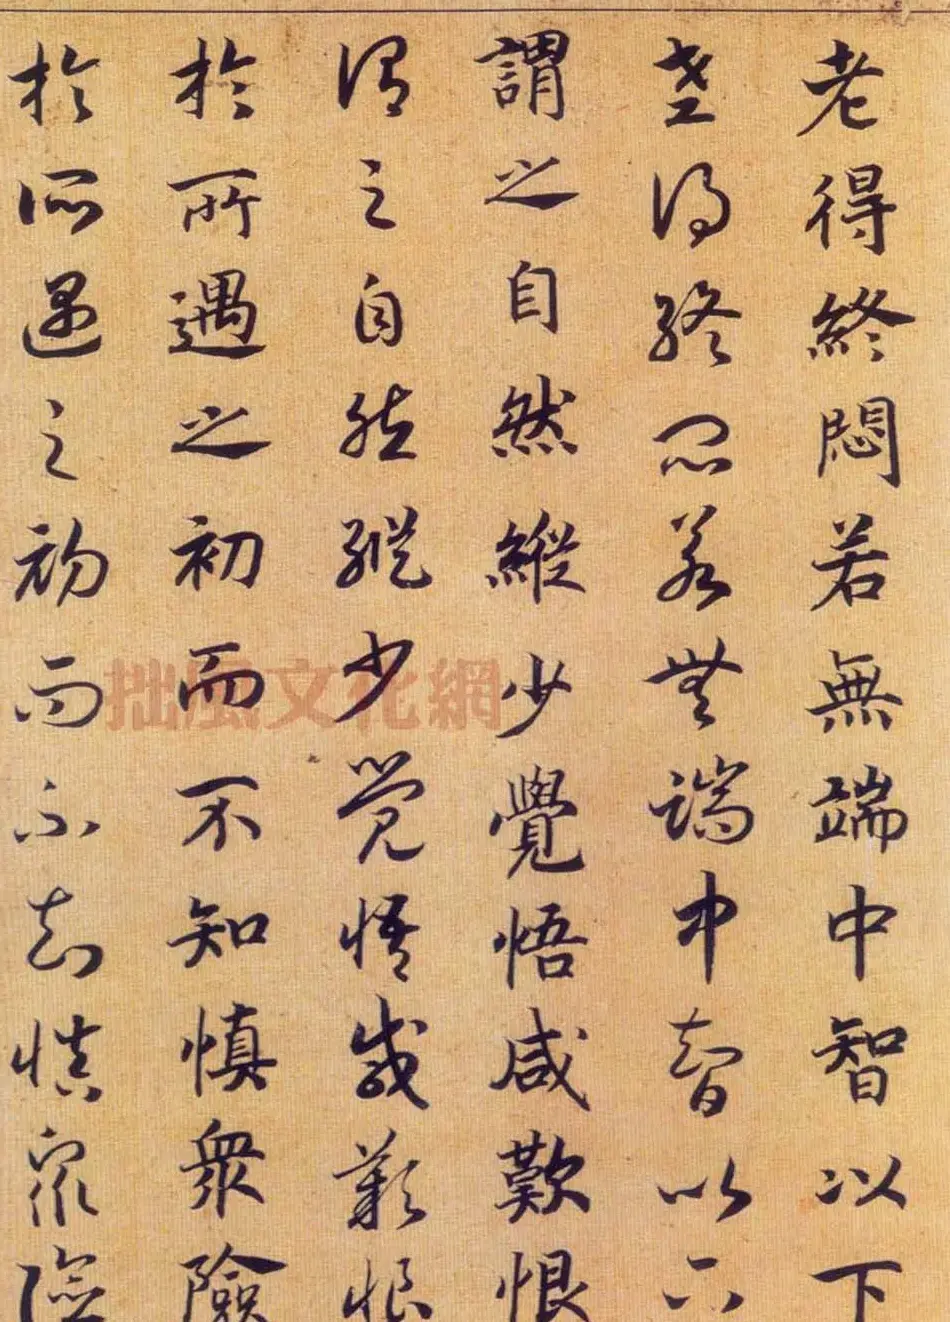 老得終悶若無端中智以下
老得終悶若無端中智以下
謂之自然縱少覺悟咸歎恨
謂之自然縱少覺悟咸歎恨
於所遇之初而不知慎眾險
於所遇之初而不知慎眾險
拙風文化網